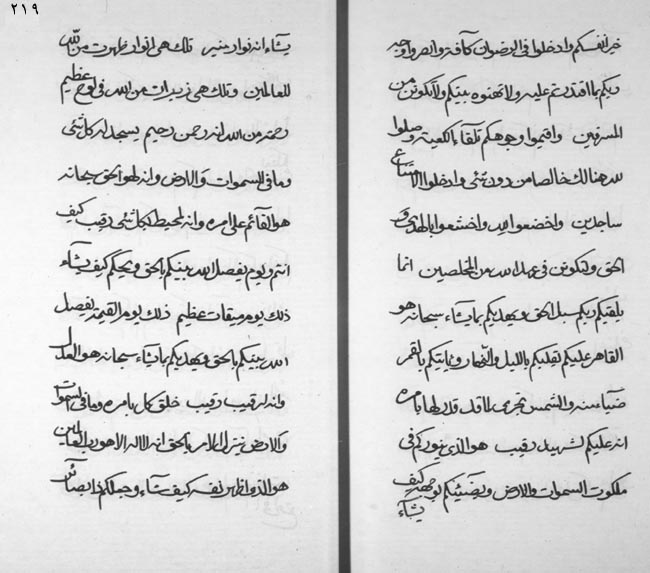 ٢١٩
خير انفسكم وادخلوا فى الرضوان كافة واتصروا وجه
ربكم بما اقتدرتم عليه ولا تهنوه بينكم ولا تكونن من
المسرفين واقيموا وجوهكم تلقاء الكعبة وصلوا
لله هنالك خالصا من دون شئ وادخلوا
ساجدين واخضعوا لله واخشعوا بالهدى و
الحق ولتكونن فى عهد الله من المخلصين انما
يلقيكم ربكم سبل الحق ويهديكم بما يشاء سبحانه هو
القاهر عليكم يقلبكم بالليل والنهار وياتيكم بالقمر
ضياء منه والشمس تجرى بما قد قدر لها بامره
انه عليكم لشهيد رقيب هو الذى ينوركم فى
ملكوت السموات والارض ويضيئنكم بوجهه كيف
يشاء
يشاء انه نوار منير تلك هى انوار ظهرت من الله
للعالمين وتلك هى زبرات من الله فى لوح عظيم
رحمة من الله انه رحمن رحيم يسجد له كل شئ
وما فى السموات والارض وانه لهو الحق سبحانه
هو القائم على امره وانه لمحيط بكل شئ رقيب كيف
انتم ويوم يفصل الله بينكم بالحق ويحكم كيف يشاء
ذلك يوم ميقات عظيم ذلك يوم القيمة يفصل
الله بينكم بالحق ويهديكم بما يشاء سبحانه هو العدل
وانه لرقيب رقيب خلق كل بامره وما فى السموات
والارض ينزل الامر بالحق انه لا اله الا هو رب العالمين
هو الذى اظهر نفسه كيف شاء وجعلكم ذا بصائر